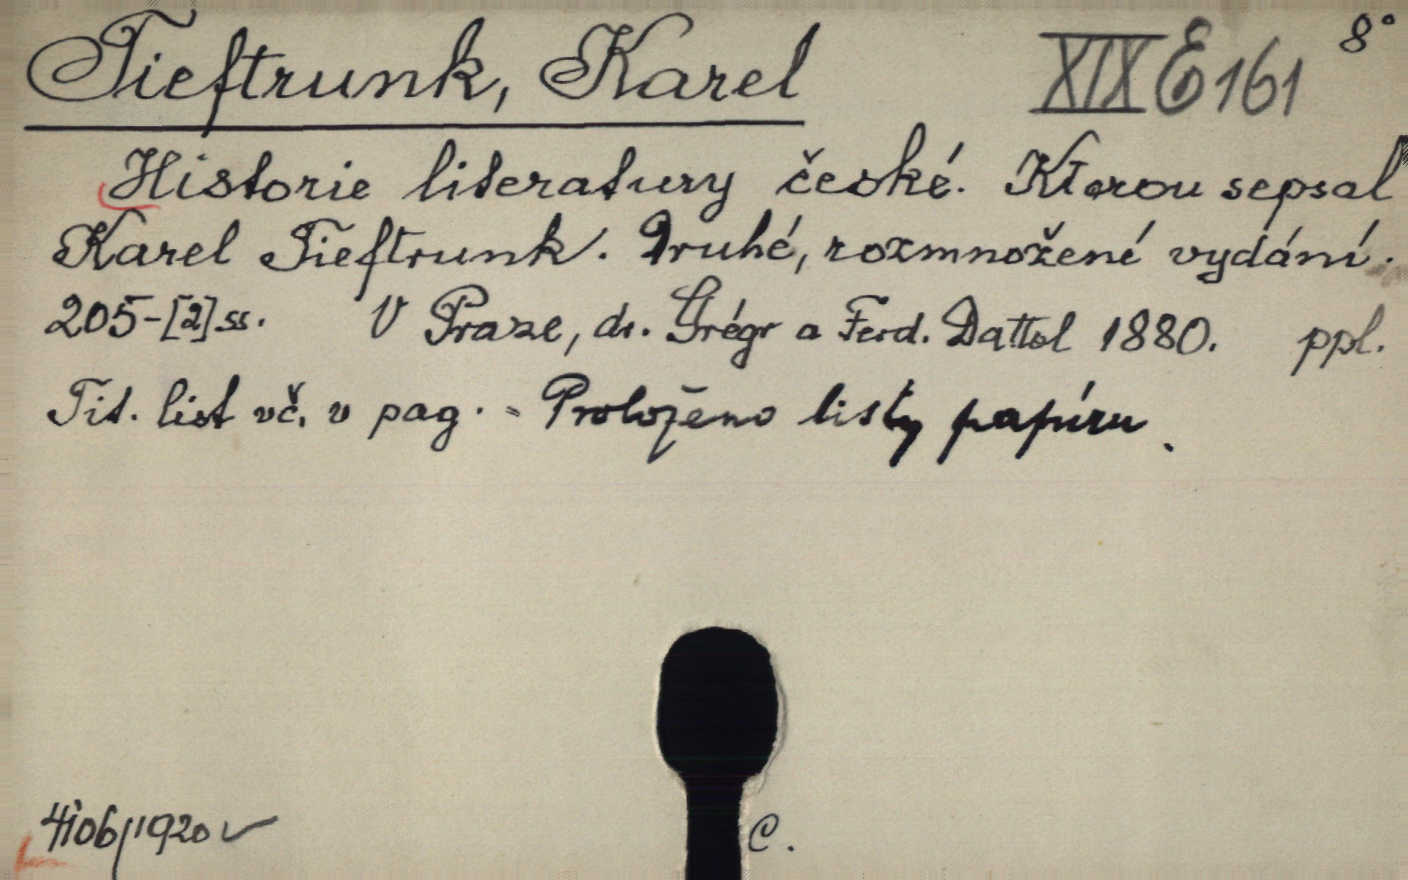 Tieftrunk, Karel XIX E 161 8°
Historie literatury české. Kterou sepsal
Karel Tieftrunk. Druhé, rozmnožené vydání.
205-[2] ss. V Praze, dr. Grégr a Ferd. Dattel 1880. ppl.
Tit. list vč. v pag. - Proloženo listy papíru.
4106/1920 C.